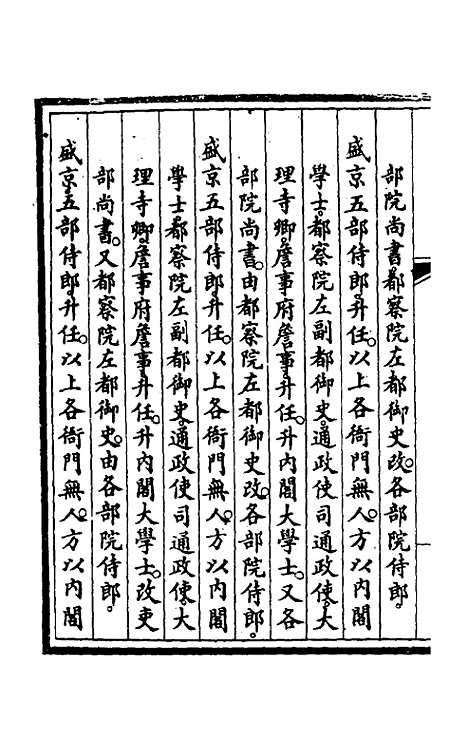 部院尚書。都察院左都御史。改各部院侍郎。
盛京五部侍郎。升任。以上各衙門無人。方以內閣
學士。都察院左副都御史。通政使司通政使。大
理寺卿。詹事府詹事。升任。升內閣大學士。又各
部院尚書。由都察院左都御史改。各部院侍郎。
盛京五部侍郎升任。以上各衙門無人。方以內閣
學士。都察院左副都御史。通政使司通政使。大
理寺卿。詹事府詹事。升任。升內閣大學士。改吏
部尚書。又都察院左都御史。由各部院侍郎。
盛京五部侍郎升任。以上各衙門無人。方以內閣